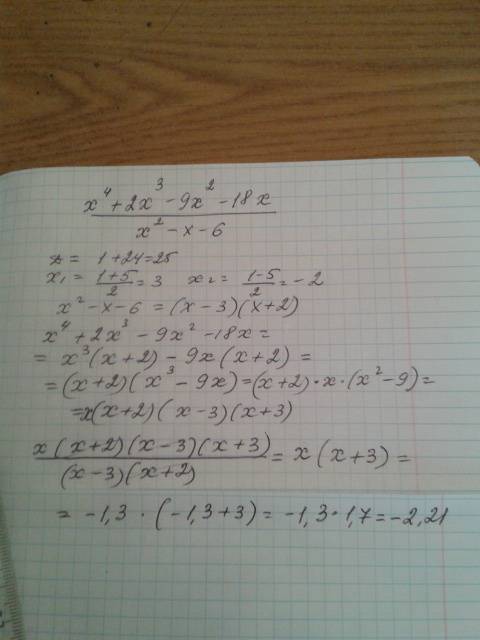 x⁴ + 2x³ - 9x² - 18x
x² - x - 6
D = 1 + 24 = 25
x₁ = (1+5)/2 = 3 x₂ = (1-5)/2 = -2
x² - x - 6 = (x - 3)(x + 2)
x⁴ + 2x³ - 9x² - 18x =
= x³(x + 2) - 9x(x + 2) =
= (x + 2)(x³ - 9x) = (x + 2) · x · (x² - 9) =
= x(x + 2)(x - 3)(x + 3)
x(x + 2)(x - 3)(x + 3) / (x - 3)(x + 2) = x(x + 3) =
= -1,3 · (-1,3 + 3) = -1,3 · 1,7 = -2,21